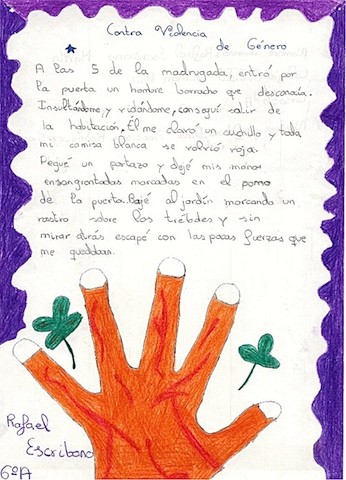 Contra Violencia
de Género
A las 5 de la madrugada, entró por
la puerta un hombre borracho que desconocía.
Insultándome, y violándome, conseguí salir de
la habitación. Él me clavó un cuchillo y toda
mi camisa blanca se volvió roja.
Pegué un portazo y dejé mis manos
ensangrentadas marcadas en el pomo
de la puerta. Bajé al jardín marcando un
rastro sobre los trébdes y sin
mirar atrás escapé con las pocas fuerzas que
me quedaban.
Rafael
Escribano
6ºA